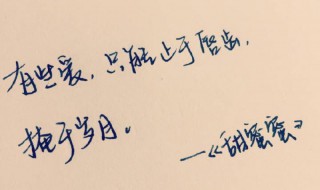 有些爱，只能止于唇齿，
掩于岁月。
—《甜蜜蜜》